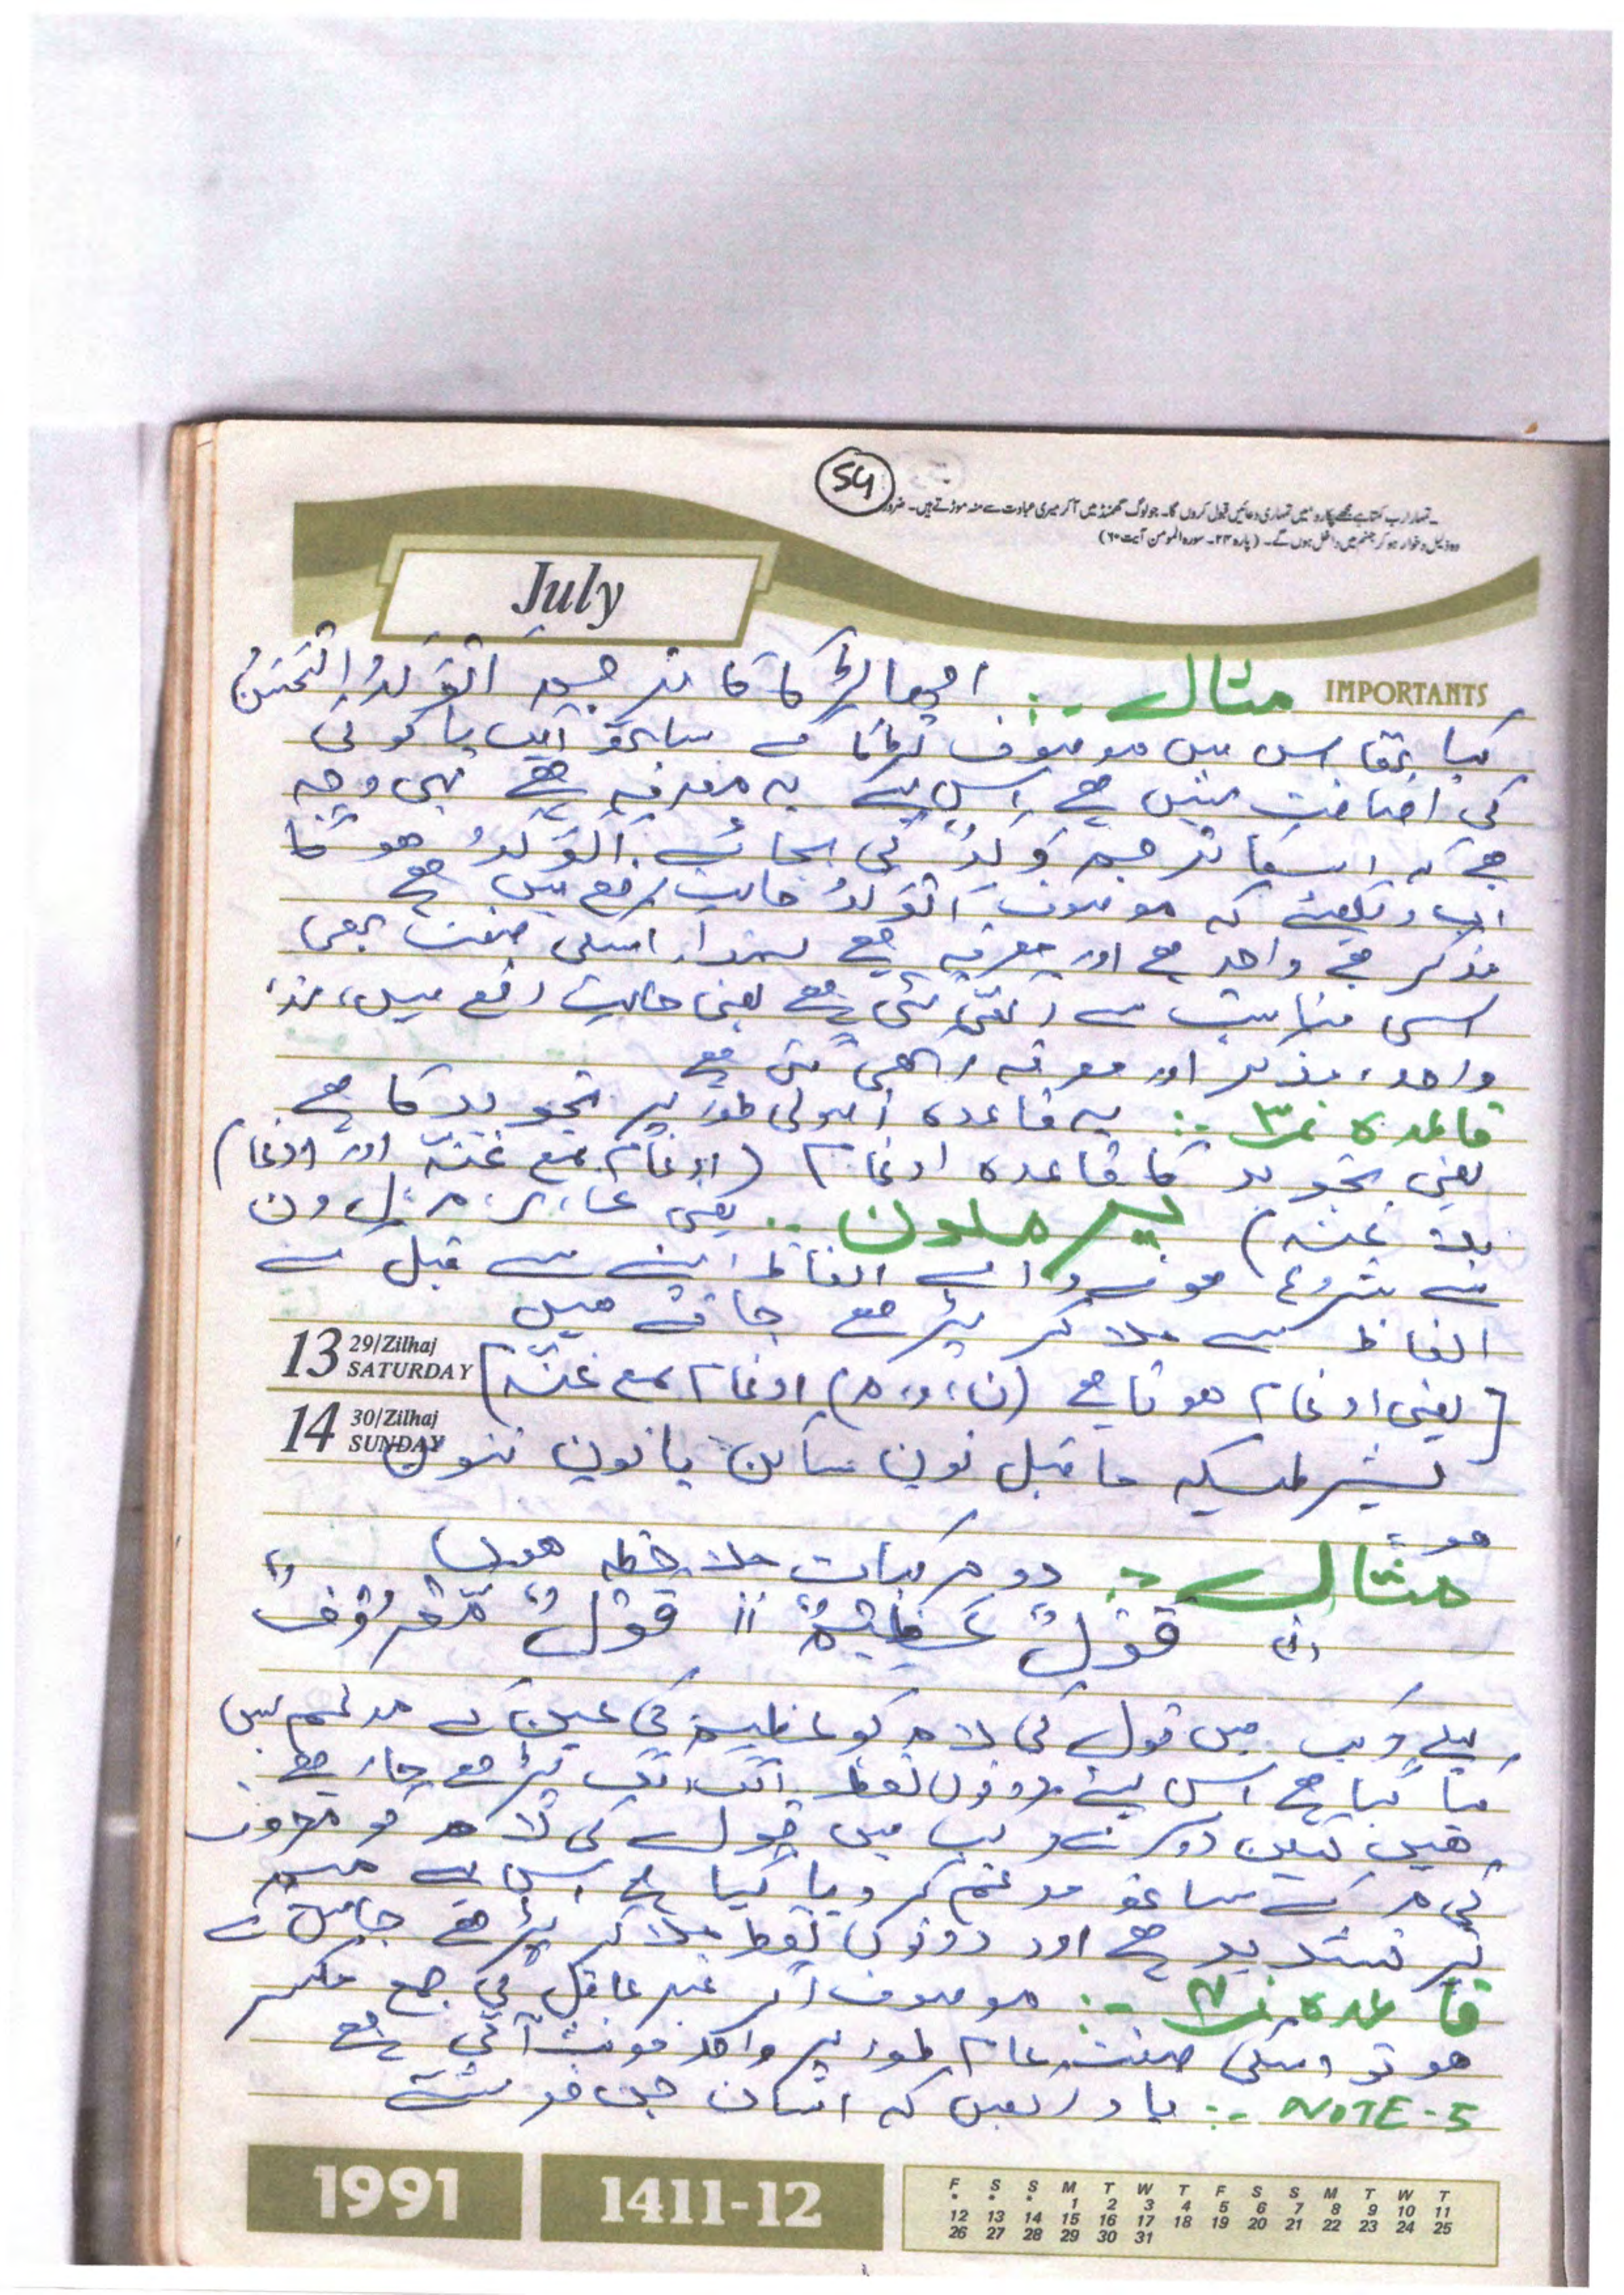 54
۔تمہارا رب کہتا ہے مجھے پکارو میں تمہاری دعائیں قبول کروں گا۔ جو لوگ گھمنڈ میں آ کر میری عبادت سے منہ موڑتے ہیں۔ ضرور
وہ ذلیل و خوار ہو کر جہنم میں داخل ہوں گے۔ (پارہ ۲۴۔ سورہ المومن آیت ۶۰)
July
IMPORTANTS
مثال :- اچھا لڑکا کا ترجمہ اَلْوَلَدُ الْحَسَنُ
کیا تھا اس میں موصوف لڑکا کے ساتھ ایک یا کوئی
کی اضافت نہیں ہے اس لیے یہ معرفہ ہے یہی وجہ
ہے کہ اسکا ترجمہ وَلَدٌ کی بجائے اَلْوَلَدُ ہو گا
اب دیکھئے کہ موصوف اَلْوَلَدُ حالت رفع میں ہے
مذکر ہے واحد ہے اور معرفہ ہے لہذا اسکی صفت بھی
اسی مناسبت سے رکھی گئی ہے یعنی حالت رفع میں،
واحد، مذکر اور معرفہ رکھی گئی ہے
قاعدہ نمبر ۳ :- یہ قاعدہ اصولی طور پر تجوید کا ہے
یعنی تجوید کا قاعدہ ادغام (ادغام مع غنّہ اور ادغام
بلا غنہ) یرملون :- یعنی ی، ر، م، ل، و، ن
سے شروع ہونے والے الفاظ اپنے سے قبل کے
الفاظ سے ملا کر پڑھے جاتے ہیں
13 29/Zilhaj SATURDAY
[یعنی ادغام ہوتا ہے (ن، و، م) ادغام مع غنّہ]
14 30/Zilhaj SUNDAY
بشرطیکہ ما قبل نون ساکن یا نون تنوین
ہو۔
مثال :- دو مرکبات ملاحظہ ہوں
(i) قَوْلٌ عَظِیْمٌ (ii) قَوْلٌ مَّعْرُوْفٌ
پہلے مرکب میں قول کی لام کو عظیم کی عین کے مدغم نہیں
کیا گیا ہے اس لیے دونوں لفظ الگ الگ پڑھے جا رہے
ہیں لیکن دوسرے مرکب میں قول کی لام کو معروف
کی م کے ساتھ مدغم کر دیا گیا ہے اس لیے میم
پر تشدید ہے اور دونوں لفظ ملا کر پڑھے جائیں گے
قاعدہ نمبر ۴ :- موصوف اگر غیر عاقل کی جمع مکسر
ہو تو اسکی صفت عام طور پر واحد مونث آتی ہے
NOTE-5 :- یاد رکھیں کہ انسان جن فرشتے
1991
1411-12
F S S M T W T F S S M T W T
* * * 1 2 3 4 5 6 7 8 9 10 11
12 13 14 15 16 17 18 19 20 21 22 23 24 25
26 27 28 29 30 31